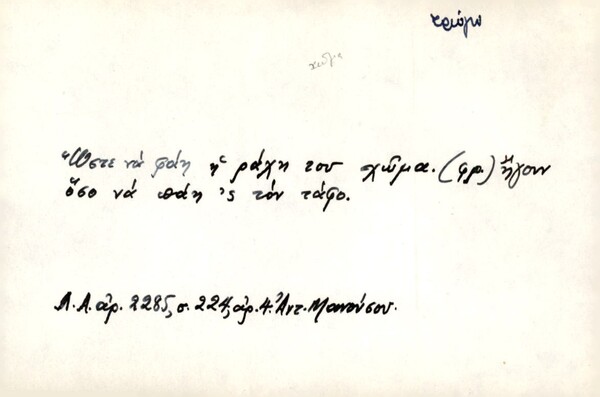 τρώγω
χῶμα
Ὥστε νά φάῃ ἡ ράχη του χῶμα. (φρ.) ἤγουν
ὅσο νά πάῃ 'ς τόν τάφο.
Λ.Α. ἀρ. 2285, σ. 224, ἀρ. 4. Ἀντ. Μανούσου.